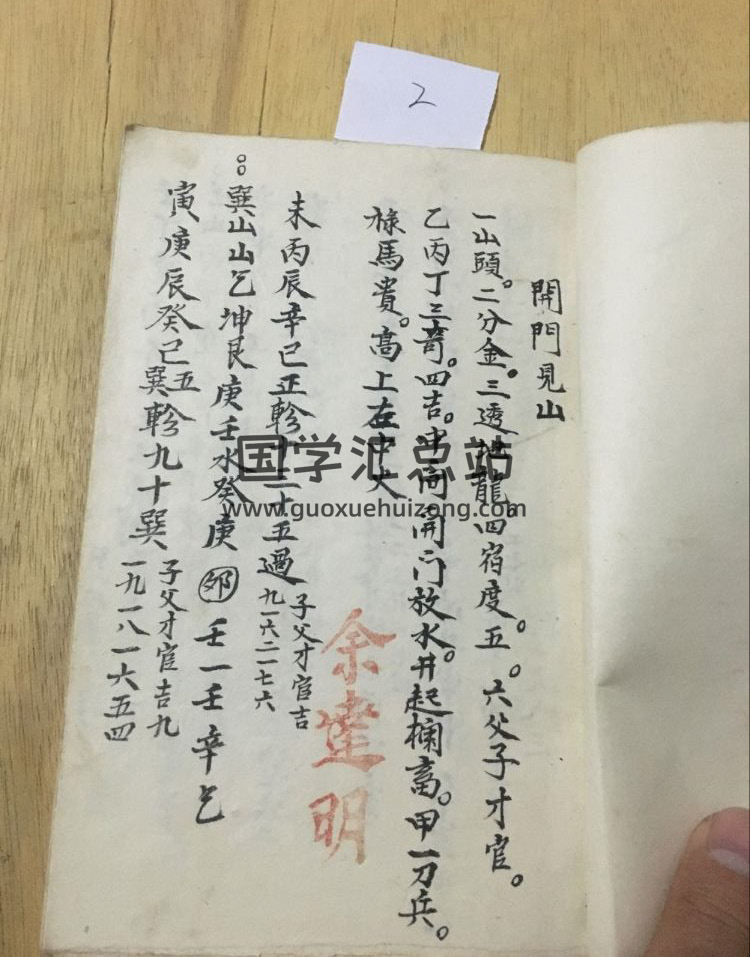 2
開門見山
一山頭。二分金。三透地龍四宿度。五。六父子才官。
乙丙丁三苛。四吉。中间开门放水。井起欄畜。甲一刀兵。
禄馬貴。高上在中火
余達明
未丙辰辛巳正軫十二十五過
子父才官吉
九一六二一七六
巽山山乞坤艮庚壬水癸庚 壬一壬辛乞
寅庚辰癸己五巽軫九十巽
子父才官吉九
一九一八一六五四
国学汇总站
www.guoxuehuizong.com